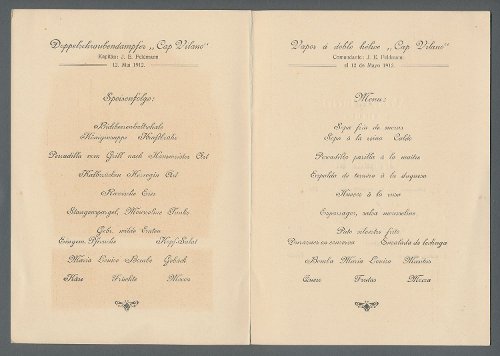 Doppelschraubendampfer „Cap Vilano"
Kapitän: J. E. Feldmann
12. Mai 1912.
Speisenfolge:
Königinsuppe Kraftbrühe
Pescadilla vom Grill nach Haushofmeister Art
Kalbsrücken Herzogin Art
Russische Eier
Stangenspargel, Mousseline Tunke
Gebr. wilde Enten
Eingem. Pfirsiche Kopf-Salat
Maria Louise Bombe Gebäck
Käse Früchte Mocca
Vapor á doble hélice „Cap Vilano"
Comandante: J. E. Feldmann
el 12 de Mayo 1912.
Menu:
Sopa fria de moras
Sopa á la reina Caldo
Pescadilla parilla á la maître
Espalda de ternera á la duquesa
Huevos á la rusa
Esparragos, salsa mousselina
Pato silvestre frito
Duraznos en conserva Ensalada de lechuga
Bomba Maria Louisa Masitas
Queso Frutas Moca